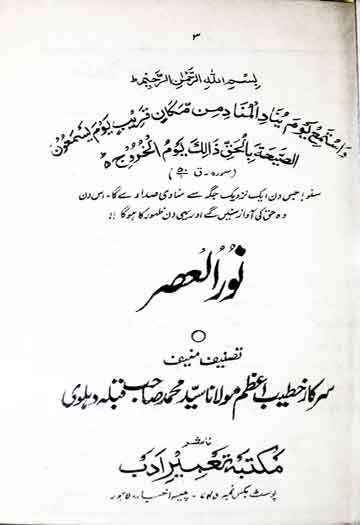 ۳
بِسْمِ اللّٰهِ الرَّحْمٰنِ الرَّحِيْمِ ط
وَاسْتَمِعْ يَوْمَ يُنَادِ الْمُنَادِ مِنْ مَّكَانٍ قَرِيْبٍ يَوْمَ يَسْمَعُوْنَ
الصَّيْحَةَ بِالْحَقِّ ذَالِكَ يَوْمُ الْخُرُوْجِ ٥
(سورہ - ق
سنو! جس دن ایک نزدیک جگہ سے منادی صدا دے گا۔ اس دن
وہ حق کی آواز سنیں گے اور یہی دن ظہور کا ہوگا !!
نُورُ العصر
تصنیف منیف
سرکار خطیب اعظم مولانا سید محمد صاحب قبلہ دہلوی
ناشر
مکتبۂ تعمیرِ ادب
پوسٹ بکس نمبر ۷۴۵ - پیسہ اخبار، لاہور